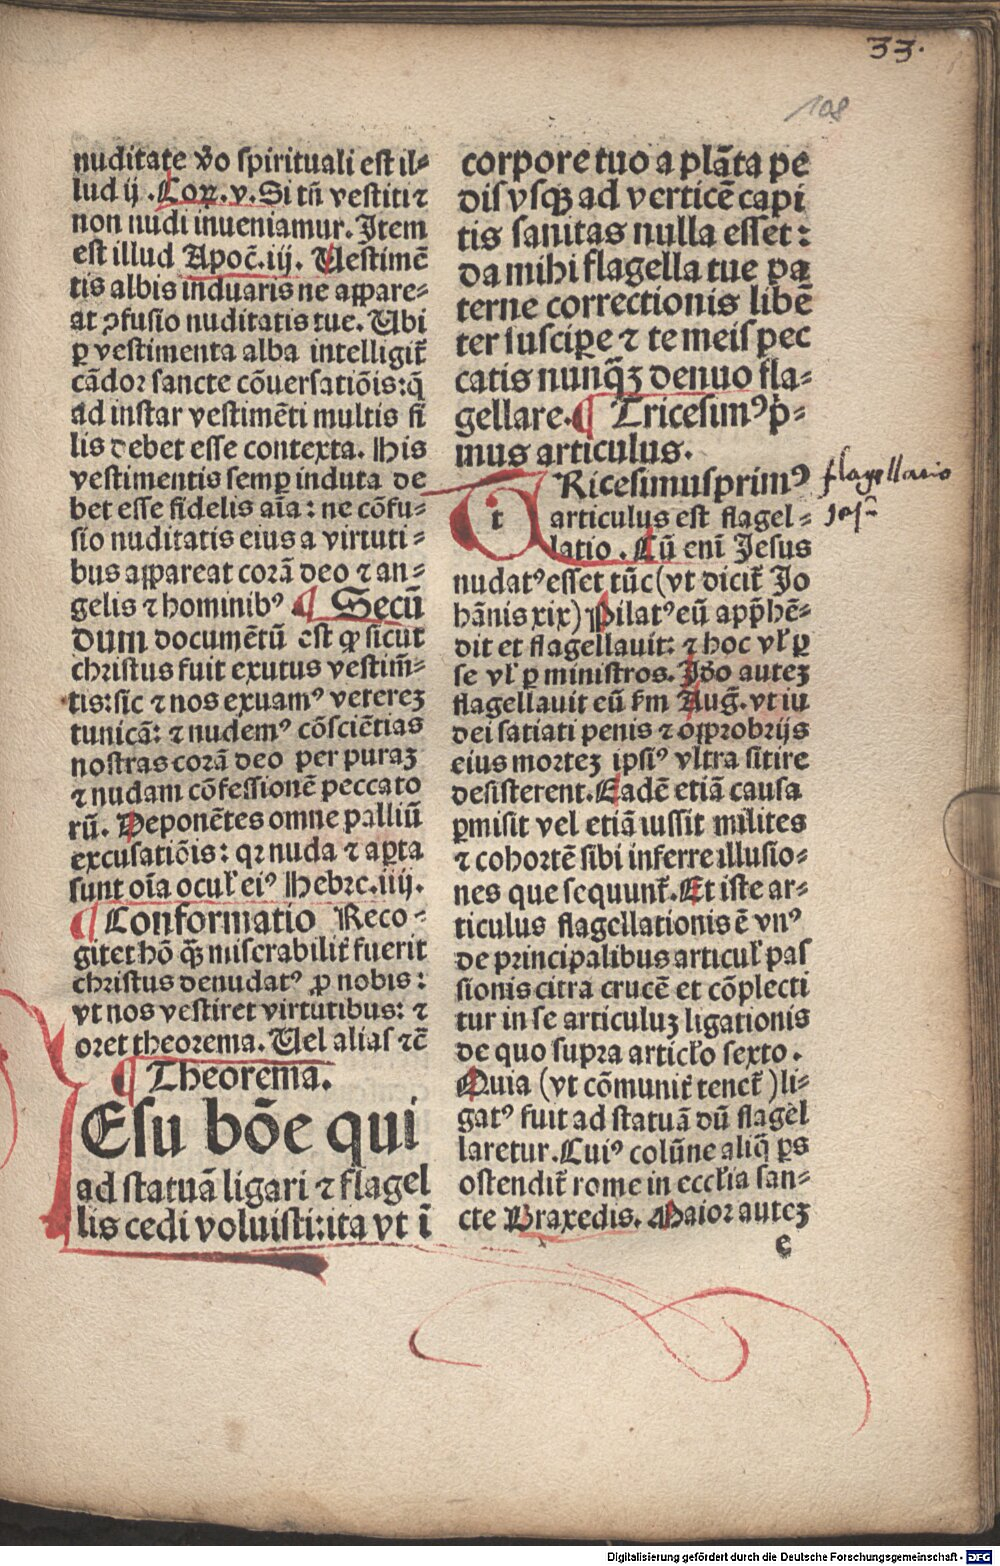 33.
108
nuditate v̄o spirituali est il⸗
lud ij .Coꝝ.v. Si tñ vestiti ⁊
non nudi inueniamur. Item
est illud Apoc̄.iij. Uestimē
tis albis induaris ne appare⸗
at ꝯfusio nuditatis tue. Ubi
ꝑ vestimenta alba intelligit̄
cādor sancte cōuersatiōis:q̄
ad instar vestimēti multis fi
lis debet esse contexta. His
vestimentis semꝑ induta de
bet esse fidelis aīa: ne cōfu⸗
sio nuditatis eius a virtuti⸗
bus appareat corā deo ⁊ an⸗
gelis ⁊ hominibꝰ ¶ Secū
dum documētū est ꝙ sicut
christus fuit exutus vestim̄⸗
tis:sic ⁊ nos exuamꝰ veterez
tunicā: ⁊ nudemꝰ cōsciētias
nostras corā deo per puraꝫ
⁊ nudam cōfessionē peccato
rū. Deponētes omne palliū
excusatiōis: qꝛ nuda ⁊ aꝑta
sunt oīa ocul̓ eiꝰ Hebre.iiij.
¶ Conformatio Reco⸗
gitet hō ꝙ̄ miserabilit̄ fuerit
christus denudatꝰ ꝓ nobis:
vt nos vestiret virtutibus: ⁊
oret theorema. Uel alias ⁊c̄
¶ Theorema.
Esu bōe qui
ad statuā ligari ⁊ flagel
lis cedi voluisti:ita vt ī
corpore tuo a plāta pe
dis vsqꝫ ad verticē capi
tis sanitas nulla esset:
da mihi flagella tue pa
terne correctionis libē
ter suscipe ⁊ te meis pec
catis nunq̄ꝫ denuo fla⸗
gellare.¶ Tricesimꝰp̄⸗
mus articulus.
tRicesimusprimꝰ
articulus est flagel⸗
latio . Cū eni Jesus
nudatꝰ esset tūc (vt dicit̄ Jo
hānis xix) Pilatꝰ eū app̄hē⸗
dit et flagellauit: ⁊ hoc vl̓ ꝑ
se vl̓ ꝑ ministros. Iō autez
flagellauit eū ẜm Auḡ. vt iu
dei satiati penis ⁊ opprobrijs
eius mortez ipsiꝰ vltra sitire
desisterent. Eadē etiā causa
ꝑmisit vel etiā iussit milites
⁊ cohortē sibi inferre illusio⸗
nes que sequunt̄. Et iste ar⸗
ticulus flagellationis ē vnꝰ
de principalibus articul̓ pas
sionis citra crucē et cōplecti
tur in se articuluꝫ ligationis
de quo supra artic̄lo sexto .
Quia (vt cōmunit̄ tenet̄ )li⸗
gatꝰ fuit ad statuā dū flagel
laretur. Cuiꝰ colūne aliq̄ ꝑs
ostendit̄ rome in eccl̄ia san⸗
cte Praxedis. Maior autez
e
flagellacio
Jesu